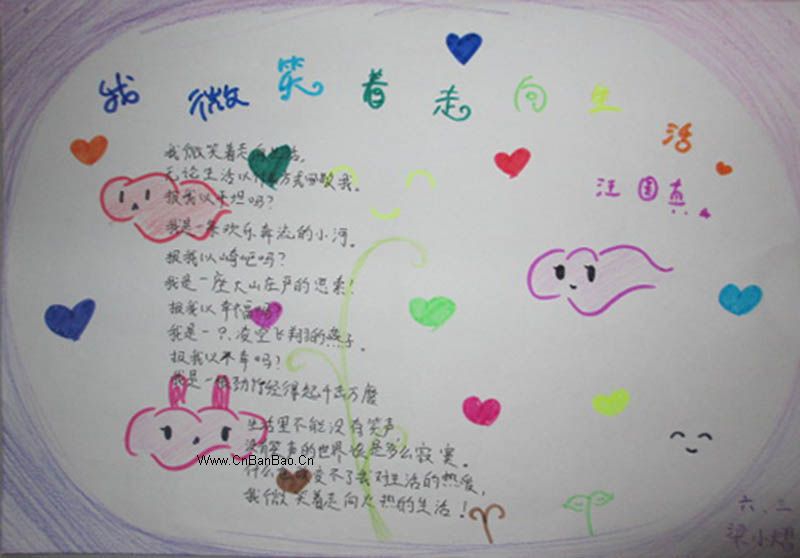 我微笑着走向生活
汪国真
我微笑着走向生活，
无论生活以什么方式回敬我。
报我以平坦吗？
我是一条欢乐奔流的小河。
报我以崎岖吗？
我是一座大山庄严的思索！
报我以幸福吗？
我是一只凌空飞翔的燕子。
报我以不幸吗？
我是一根劲竹经得起千击万磨
生活里不能没有笑声，
没有笑声的世界该是多么寂寞。
什么也改变不了我对生活的热爱，
我微笑着走向火热的生活！
Www.CnBanBao.Cn
六、二
梁小